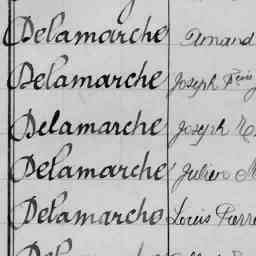 Delamarche Amand
Delamarche Joseph Fçois
Delamarche Joseph
Delamarche Julien M
Delamarche Louis Pierre